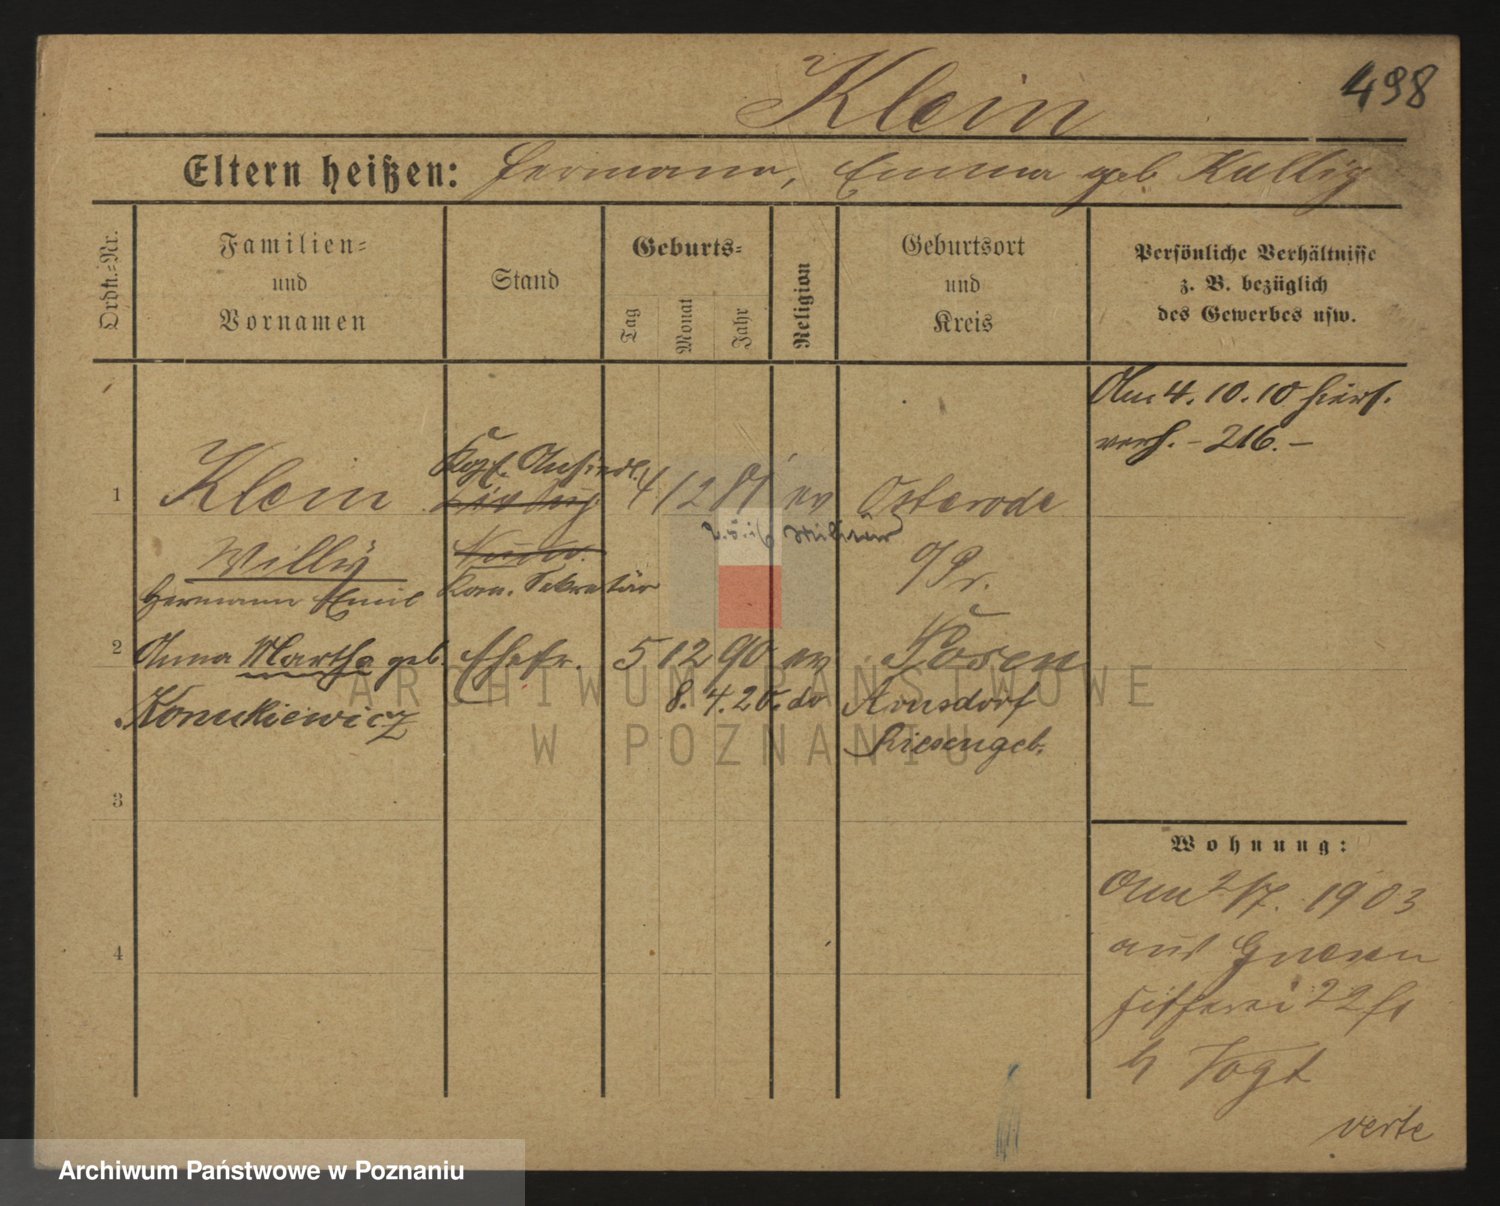 Klein
498
Eltern heißen: Hermann, Emma geb Kullig
Ordn.=Nr.
Familien=
und
Vornamen
Stand
Geburts=
Tag
Monat
Jahr
Religion
Geburtsort
und
Kreis
Persönliche Verhältnisse
z. B. bezüglich
des Gewerbes usw.
Am 4. 10. 10 hiers.
verh. - 216. -
1
Klein
Kgl. Ansiedl.
4 12 81 ev
Osterode
Militär
o/Pr.
Willy
Hermann Emil
Kom. Sekretär
2
Anna Martha geb.
Ehefr.
5 12 90 ev
Posen
Konukiewicz
8. 4. 20. do
Arnsdorf
Riesengeb.
ARCHIWUM PAŃSTWOWE
W POZNANIU
3
4
Wohnung:
Am 2/7. 1903
aus Gnesen
Fischerei 22
b Vogt
verte
Archiwum Państwowe w Poznaniu